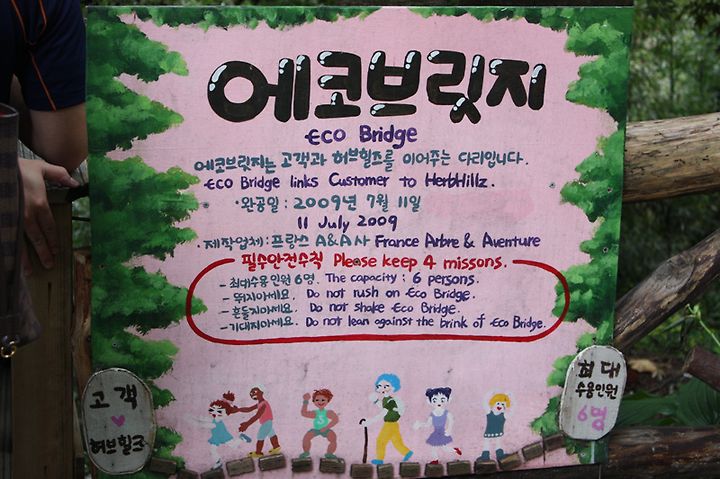 에코브릿지
Eco Bridge
에코브릿지는 고객과 허브힐즈를 이어주는 다리입니다.
Eco Bridge links Customer to HerbHillz.
·완공일 : 2009년 7월 11일
11 July 2009
·제작업체 : 프랑스 A&A사 France Arbre & Aventure
필수안전수칙 Please keep 4 missons.
- 최대수용인원 6명. The capacity : 6 persons.
- 뛰지마세요. Do not rush on Eco Bridge.
- 흔들지마세요. Do not shake Eco Bridge.
- 기대지마세요. Do not lean against the brink of Eco Bridge.
고객
허브힐즈
최대
수용인원
6명